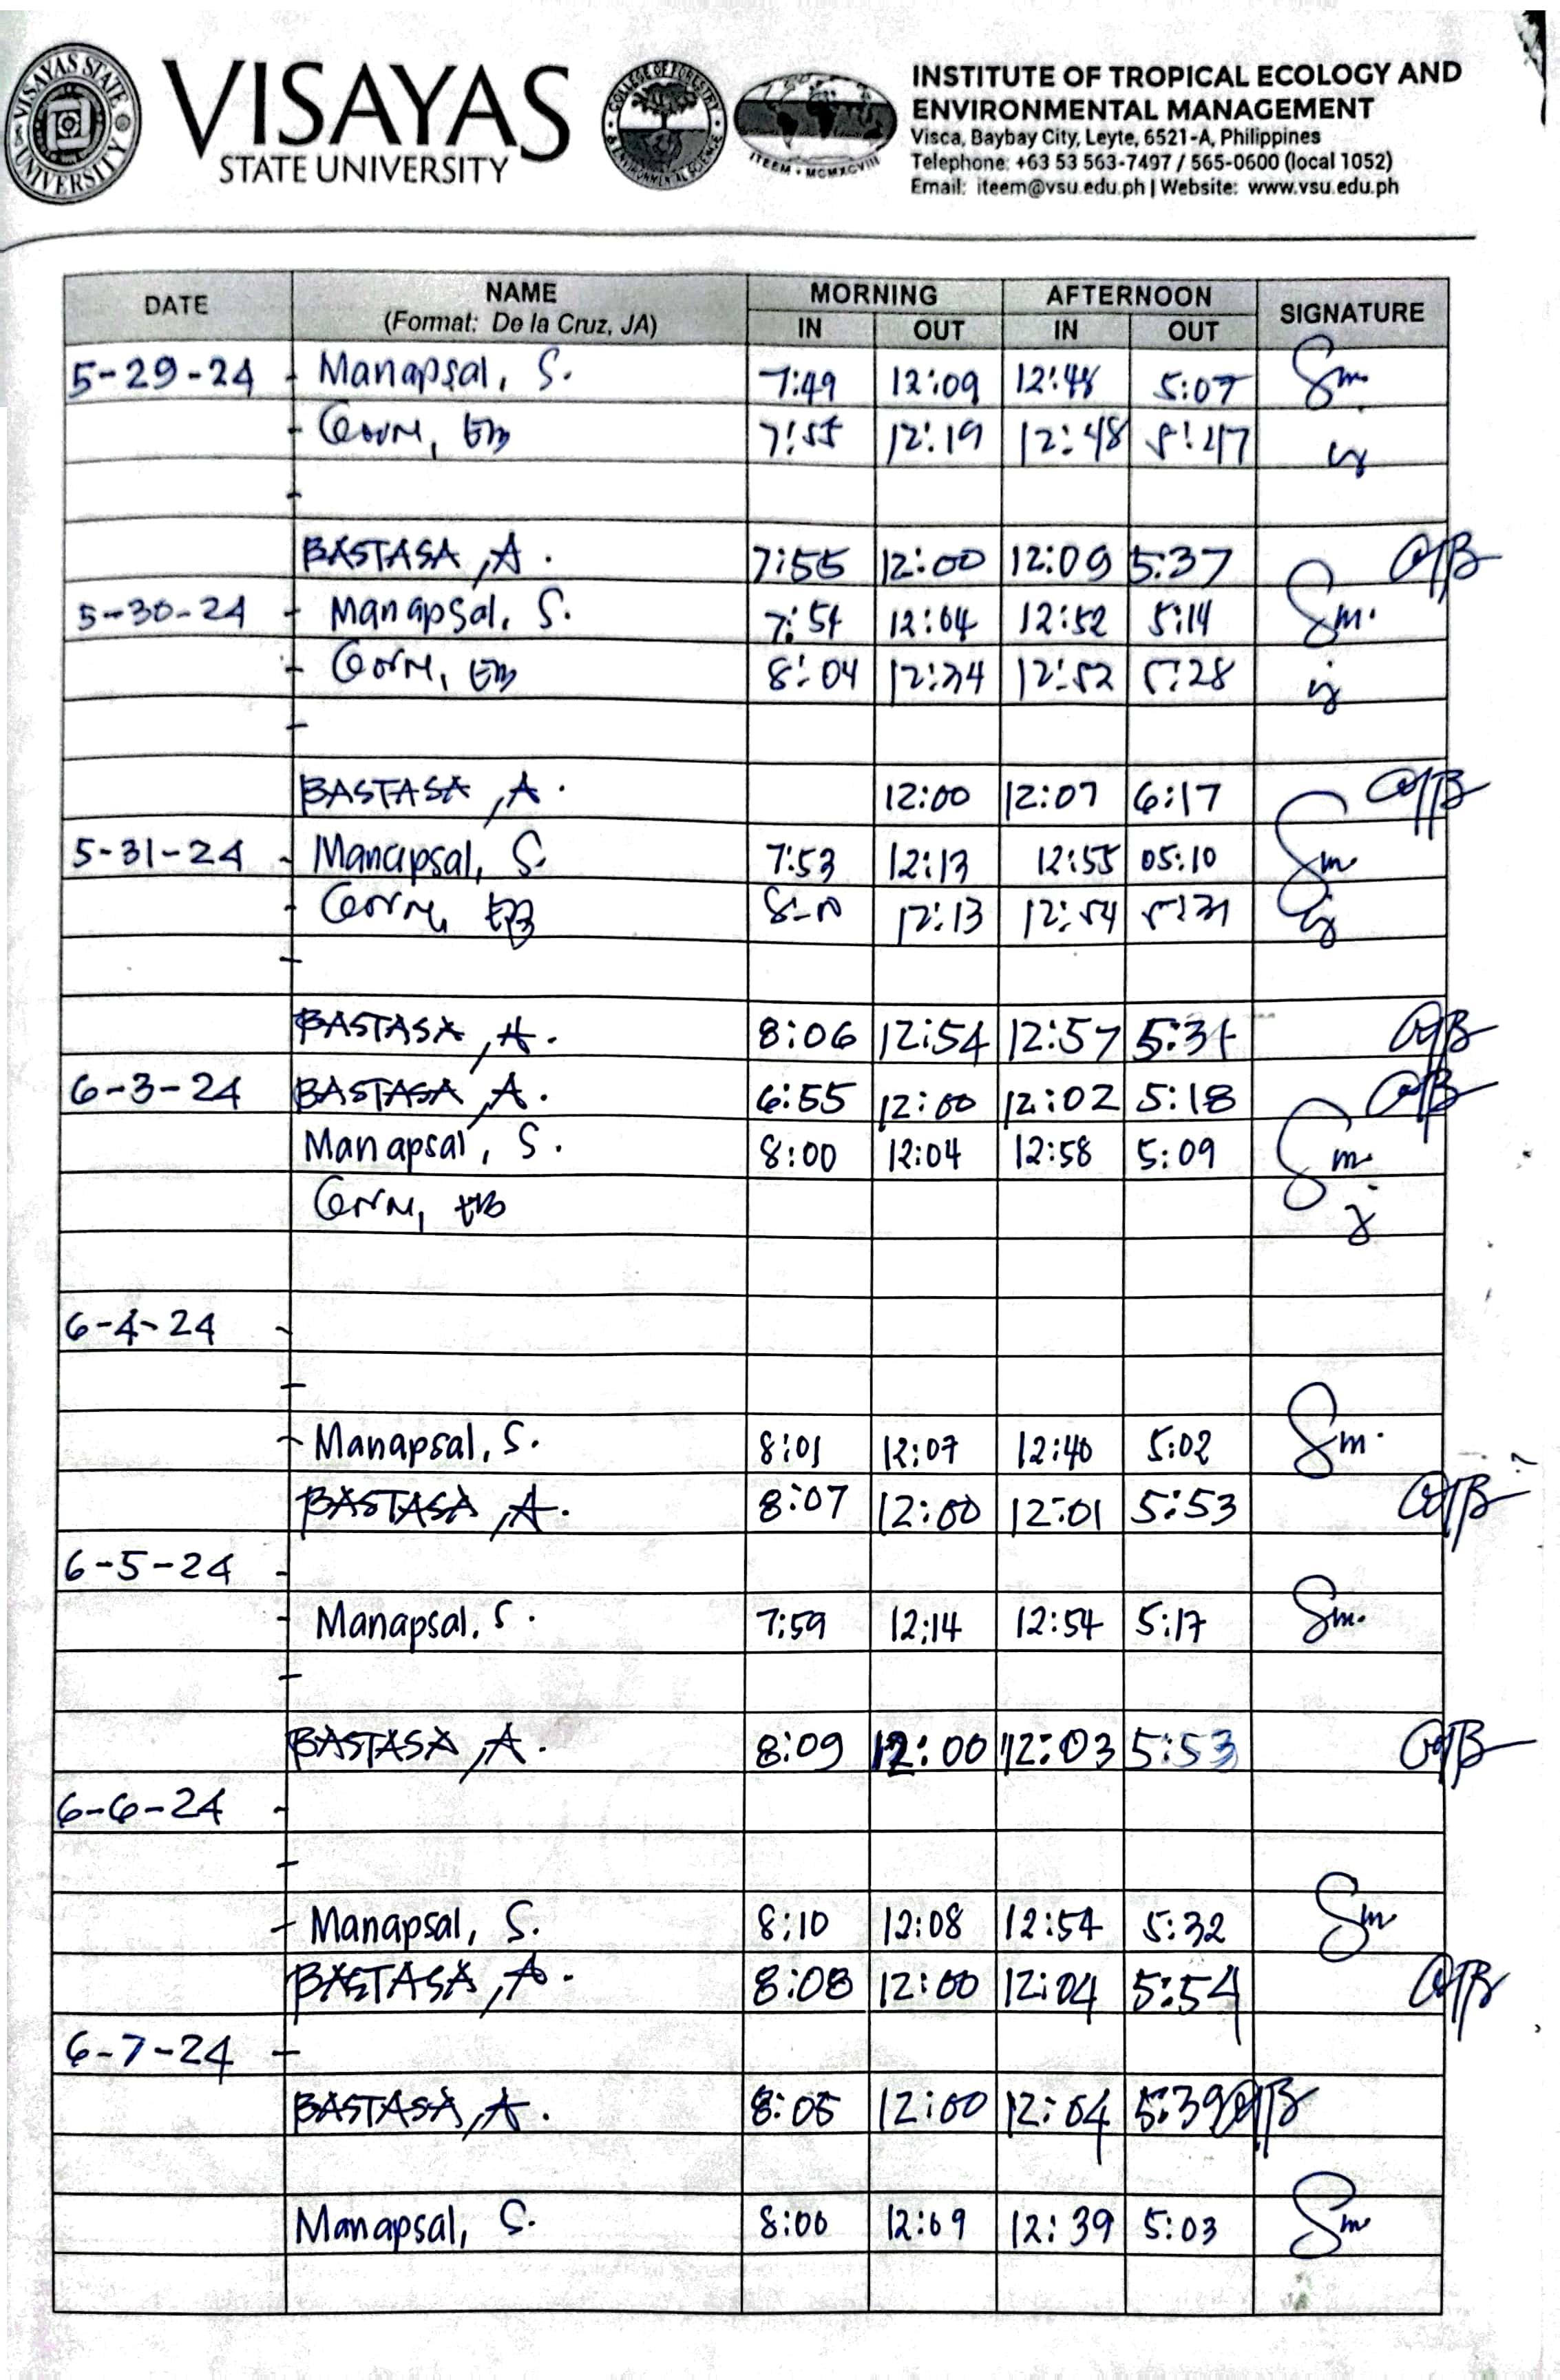 VISAYAS STATE UNIVERSITY
VISAYAS
STATE UNIVERSITY
COLLEGE OF FORESTRY & ENVIRONMENTAL SCIENCE
ITEEM • MCMXCVIII
INSTITUTE OF TROPICAL ECOLOGY AND
ENVIRONMENTAL MANAGEMENT
Visca, Baybay City, Leyte, 6521-A, Philippines
Telephone: +63 53 563-7497 / 565-0600 (local 1052)
Email: iteem@vsu.edu.ph | Website: www.vsu.edu.ph
DATE NAME MORNING AFTERNOON SIGNATURE
(Format: De la Cruz, JA) IN OUT IN OUT
5-29-24 - Manapsal, S. 7:49 12:09 12:48 5:07 Sm.
- 7:55 12:19 12:48
-
BASTASA, A. 7:55 12:00 12:09 5:37
5-30-24 - Manapsal, S. 12:04 12:52 5:14 Sm.
- 8:04 12:52 5:28
-
BASTASA, A. 12:00 12:07 6:17
5-31-24 - Manapsal, S. 7:53 12:13 12:55 05:10 Sm
- 12:13 12:54
-
BASTASA, A. 8:06 12:54 12:57
6-3-24 BASTASA, A. 6:55 12:00 12:02 5:18
Manapsal, S. 8:00 12:04 12:58 5:09 Sm
6-4-24 -
-
- Manapsal, S. 8:01 12:07 12:40 5:02 Sm.
BASTASA, A. 8:07 12:00 12:01 5:53
6-5-24 -
- Manapsal, S. 7:59 12:14 12:54 5:17 Sm.
-
BASTASA, A. 8:09 12:00 12:03 5:53
6-6-24 -
-
- Manapsal, S. 8:10 12:08 12:54 5:32 Sm
BASTASA, A. 8:08 12:00 12:04 5:54
6-7-24 -
BASTASA, A. 8:05 12:00 12:04 5:39
Manapsal, S. 8:00 12:09 12:39 5:03 Sm